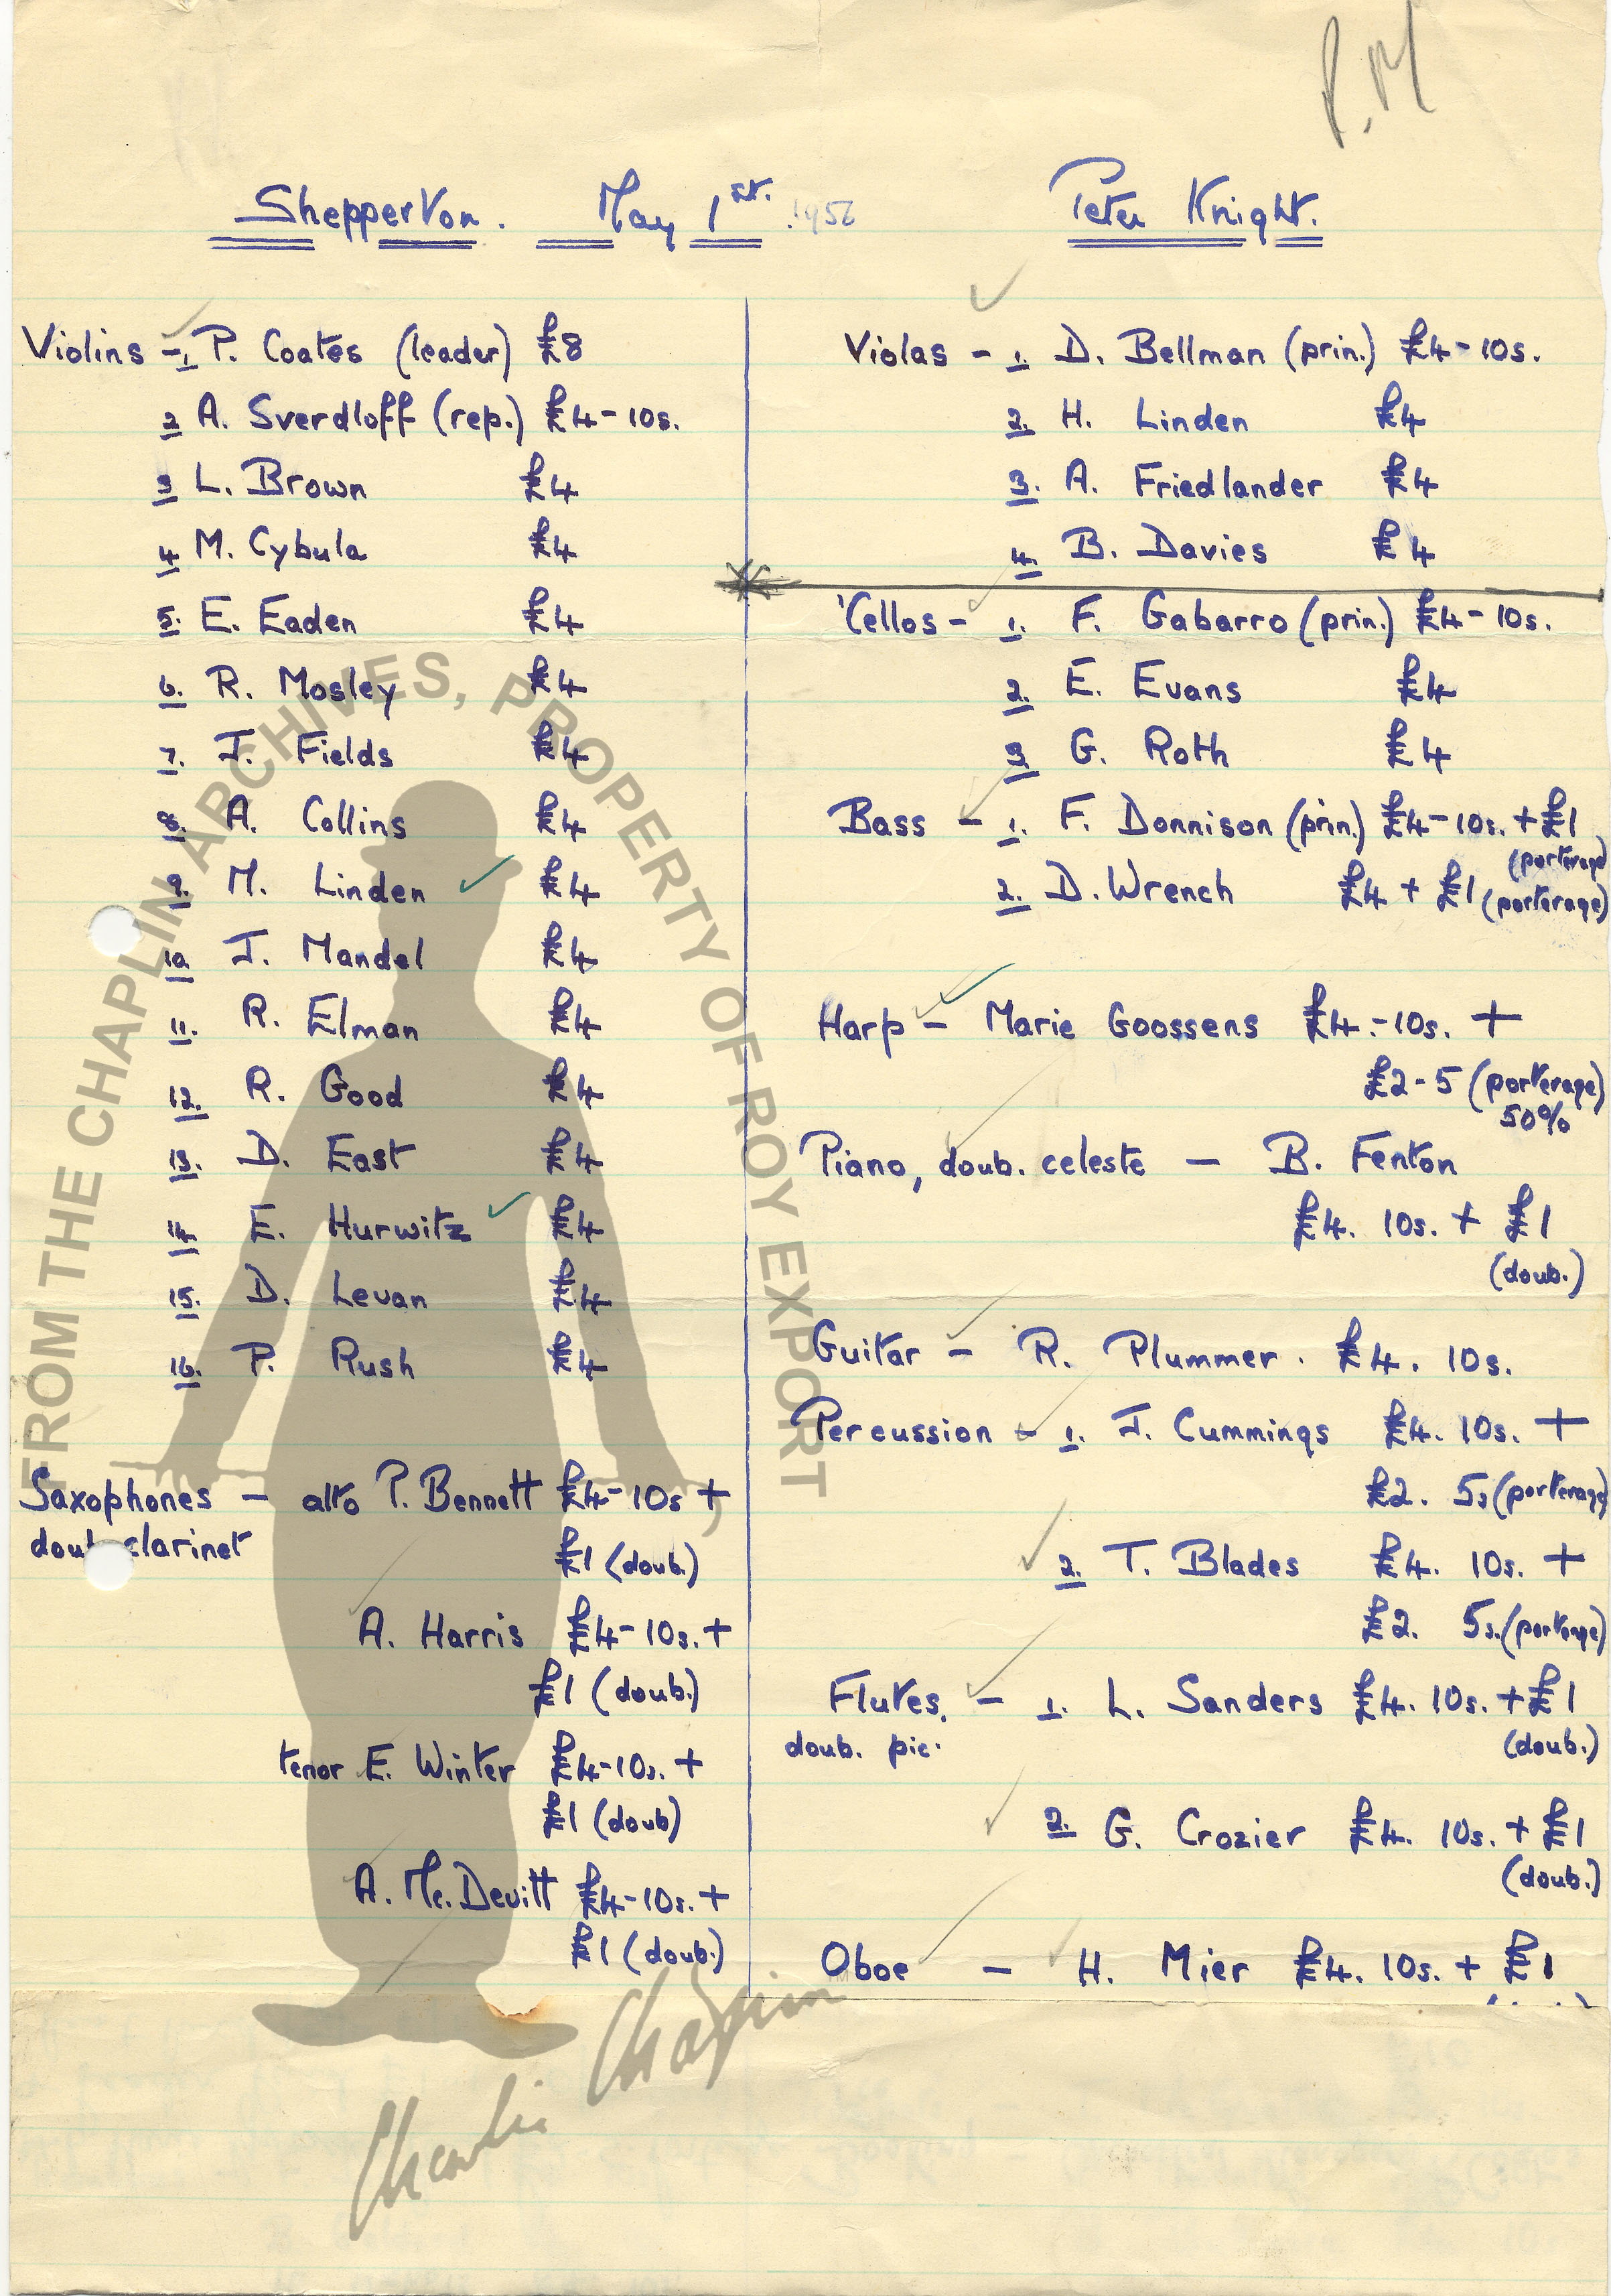 P.M
Shepperton. May 1st. 1956 Peter Knight.
Violins - 1. P. Coates (leader) £8
2 A. Sverdloff (rep.) £4-10s.
3 L. Brown £4
4 M. Cybula £4
5. E. Eaden £4
6. R. Mosley £4
7. J. Fields £4
8. A. Collins £4
9. M. Linden £4
10 J. Mandel £4
11. R. Elman £4
12. R. Good £4
13. D. East £4
14. E. Hurwitz £4
15. D. Levan £4
16. P. Rush £4
Saxophones - alto P. Bennett £4-10s +
doub. clarinet £1 (doub.)
A. Harris £4-10s. +
£1 (doub.)
tenor E. Winter £4-10s. +
£1 (doub)
A. Mc. Devitt £4-10s. +
£1 (doub.)
Violas - 1. D. Bellman (prin.) £4-10s.
2. H. Linden £4
3. A. Friedlander £4
4. B. Davies £4
'Cellos - 1. F. Gabarro (prin.) £4-10s.
2. E. Evans £4
3 G. Roth £4
Bass - 1. F. Donnison (prin.) £4-10s. + £1
(porterage)
2. D. Wrench £4 + £1 (porterage)
Harp - Marie Goossens £4.-10s. +
£2-5 (porterage)
50%
Piano, doub. celeste - B. Fenton
£4. 10s. + £1
(doub.)
Guitar - R. Plummer. £4. 10s.
Percussion - 1. J. Cummings £4. 10s. +
£2. 5s (porterage)
2. T. Blades £4. 10s. +
£2. 5s. (porterage)
Flutes, - 1. L. Sanders £4. 10s. + £1
doub. pic. (doub.)
2. G. Crozier £4. 10s. + £1
(doub.)
Oboe - H. Mier £4. 10s. + £1
FROM THE CHAPLIN ARCHIVES, PROPERTY OF ROY EXPORT
Charlie Chaplin